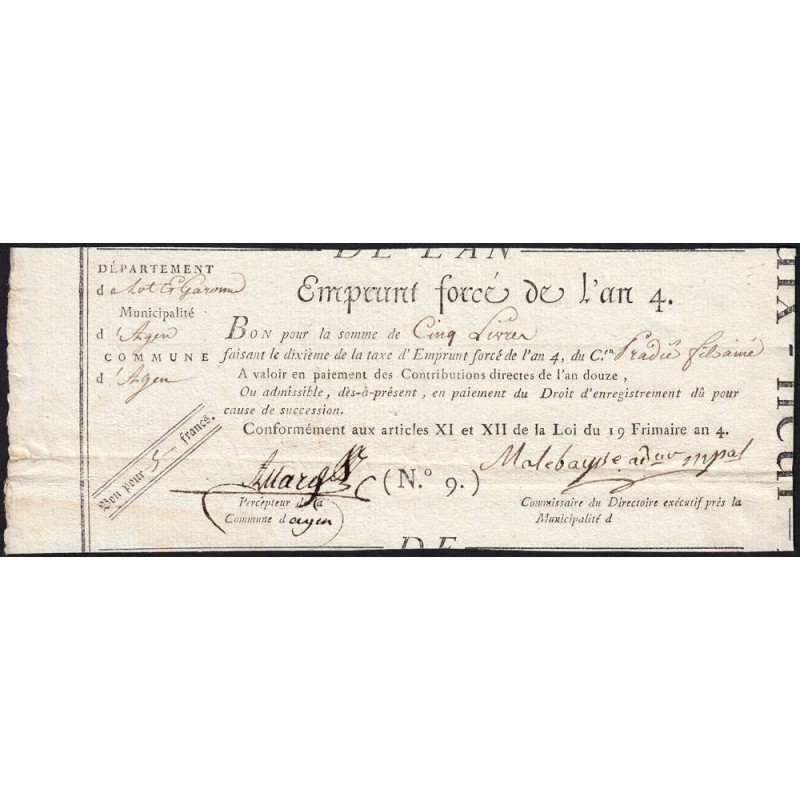 DE L'AN
DÉPARTEMENT
d e Lot et Garonne
Municipalité
d 'Agen
COMMUNE
d 'Agen
Bon pour 5 francs.
Emprunt forcé de l'an 4.
BON pour la somme de Cinq Livres
faisant le dixième de la taxe d'Emprunt forcé de l'an 4, du C.en Pradié fils ainé
A valoir en paiement des Contributions directes de l'an douze,
Ou admissible, dès-à-présent, en paiement du Droit d'enregistrement dû pour
cause de succession.
Conformément aux articles XI et XII de la Loi du 19 Frimaire an 4.
(N.º 9.)
Percepteur de la
Commune d'agen
Malebaysse adeur mpal
Commissaire du Directoire exécutif près la
Municipalité d
DE